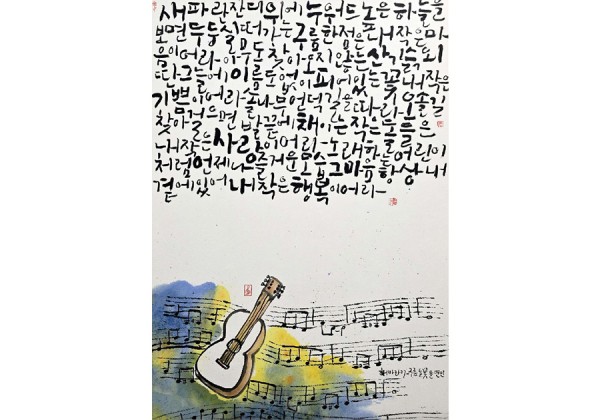 새파란 잔디 위에 누워 드높은 하늘을
보면 두둥실 떠가는 구름 한 점은 내 작은 마
음이어라 아무도 찾아오지 않는 산기슭 외
딴 그늘에 이름도 없이 피어있는 꽃 내 작은
기쁨이어라 솔나무 언덕길을 따라 오솔길
찾아 걸으면 발끝에 채이는 작은 돌들은
내 작은 사랑이어라 노래하는 어린이
처럼 언제나 즐거운 모습 그 마음 항상 내
곁에 있어 내 작은 행복이어라
해바라기-구름 들꽃 돌 연인